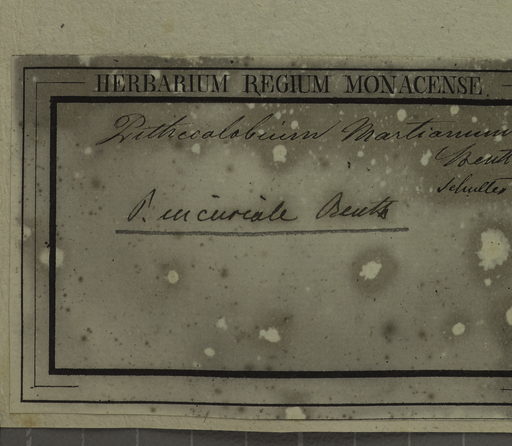 HERBARIUM REGIUM MONACENSE.
Pithecolobium Martianum
Benth
Schultes
P. incuriale Benth